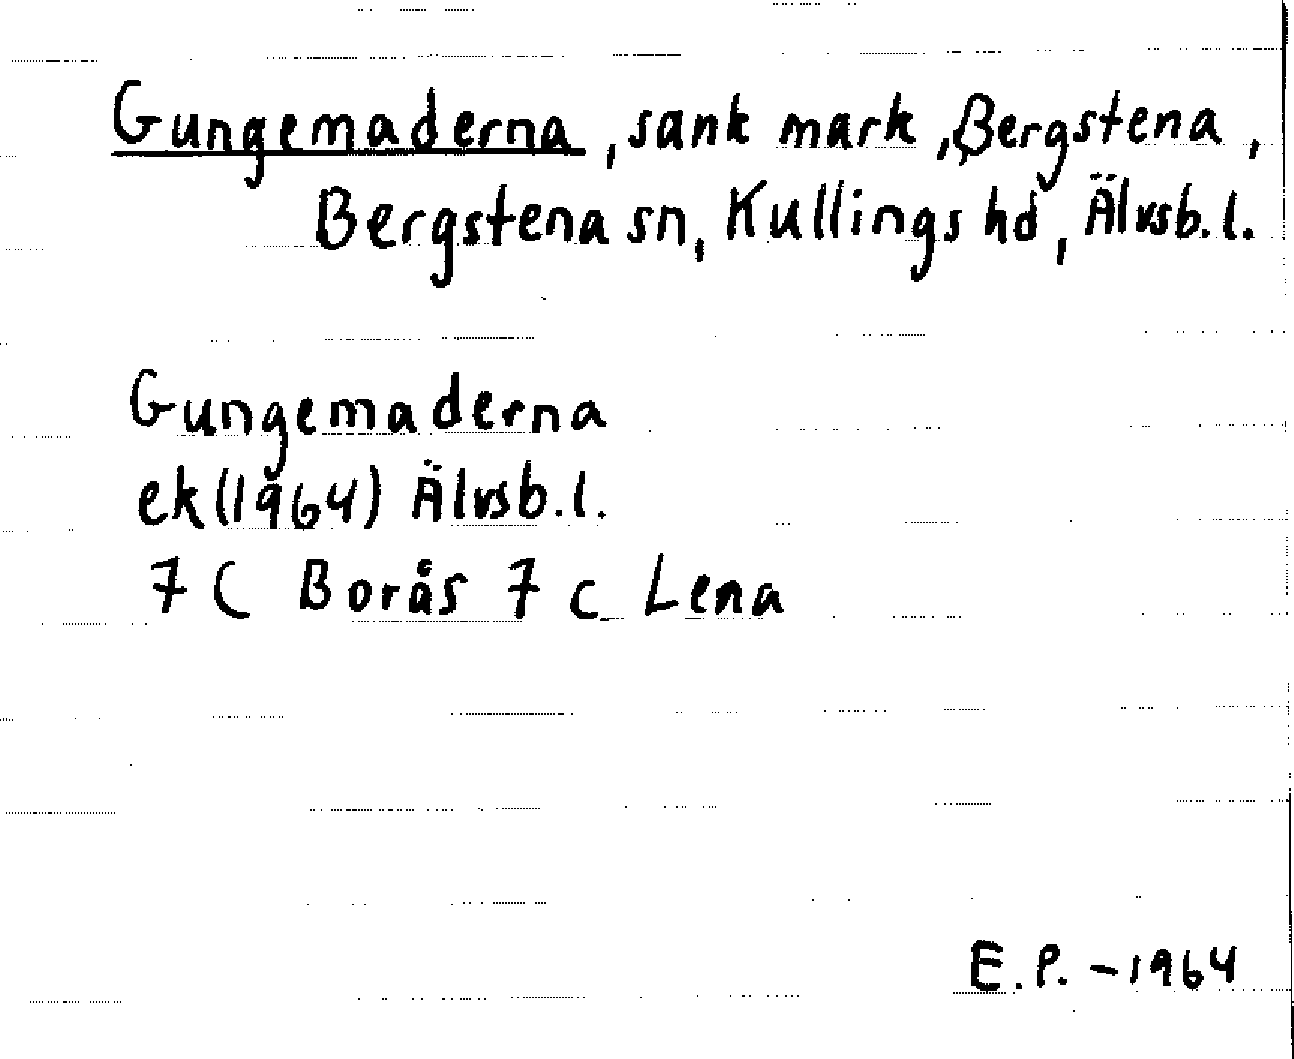 Gungemaderna, sank mark, Bergstena,
Bergstena sn, Kullings hd, Älvsb. l.
Gungemaderna
ek (1964) Älvsb. l.
7 C Borås 7 c Lena
E. P. - 1964